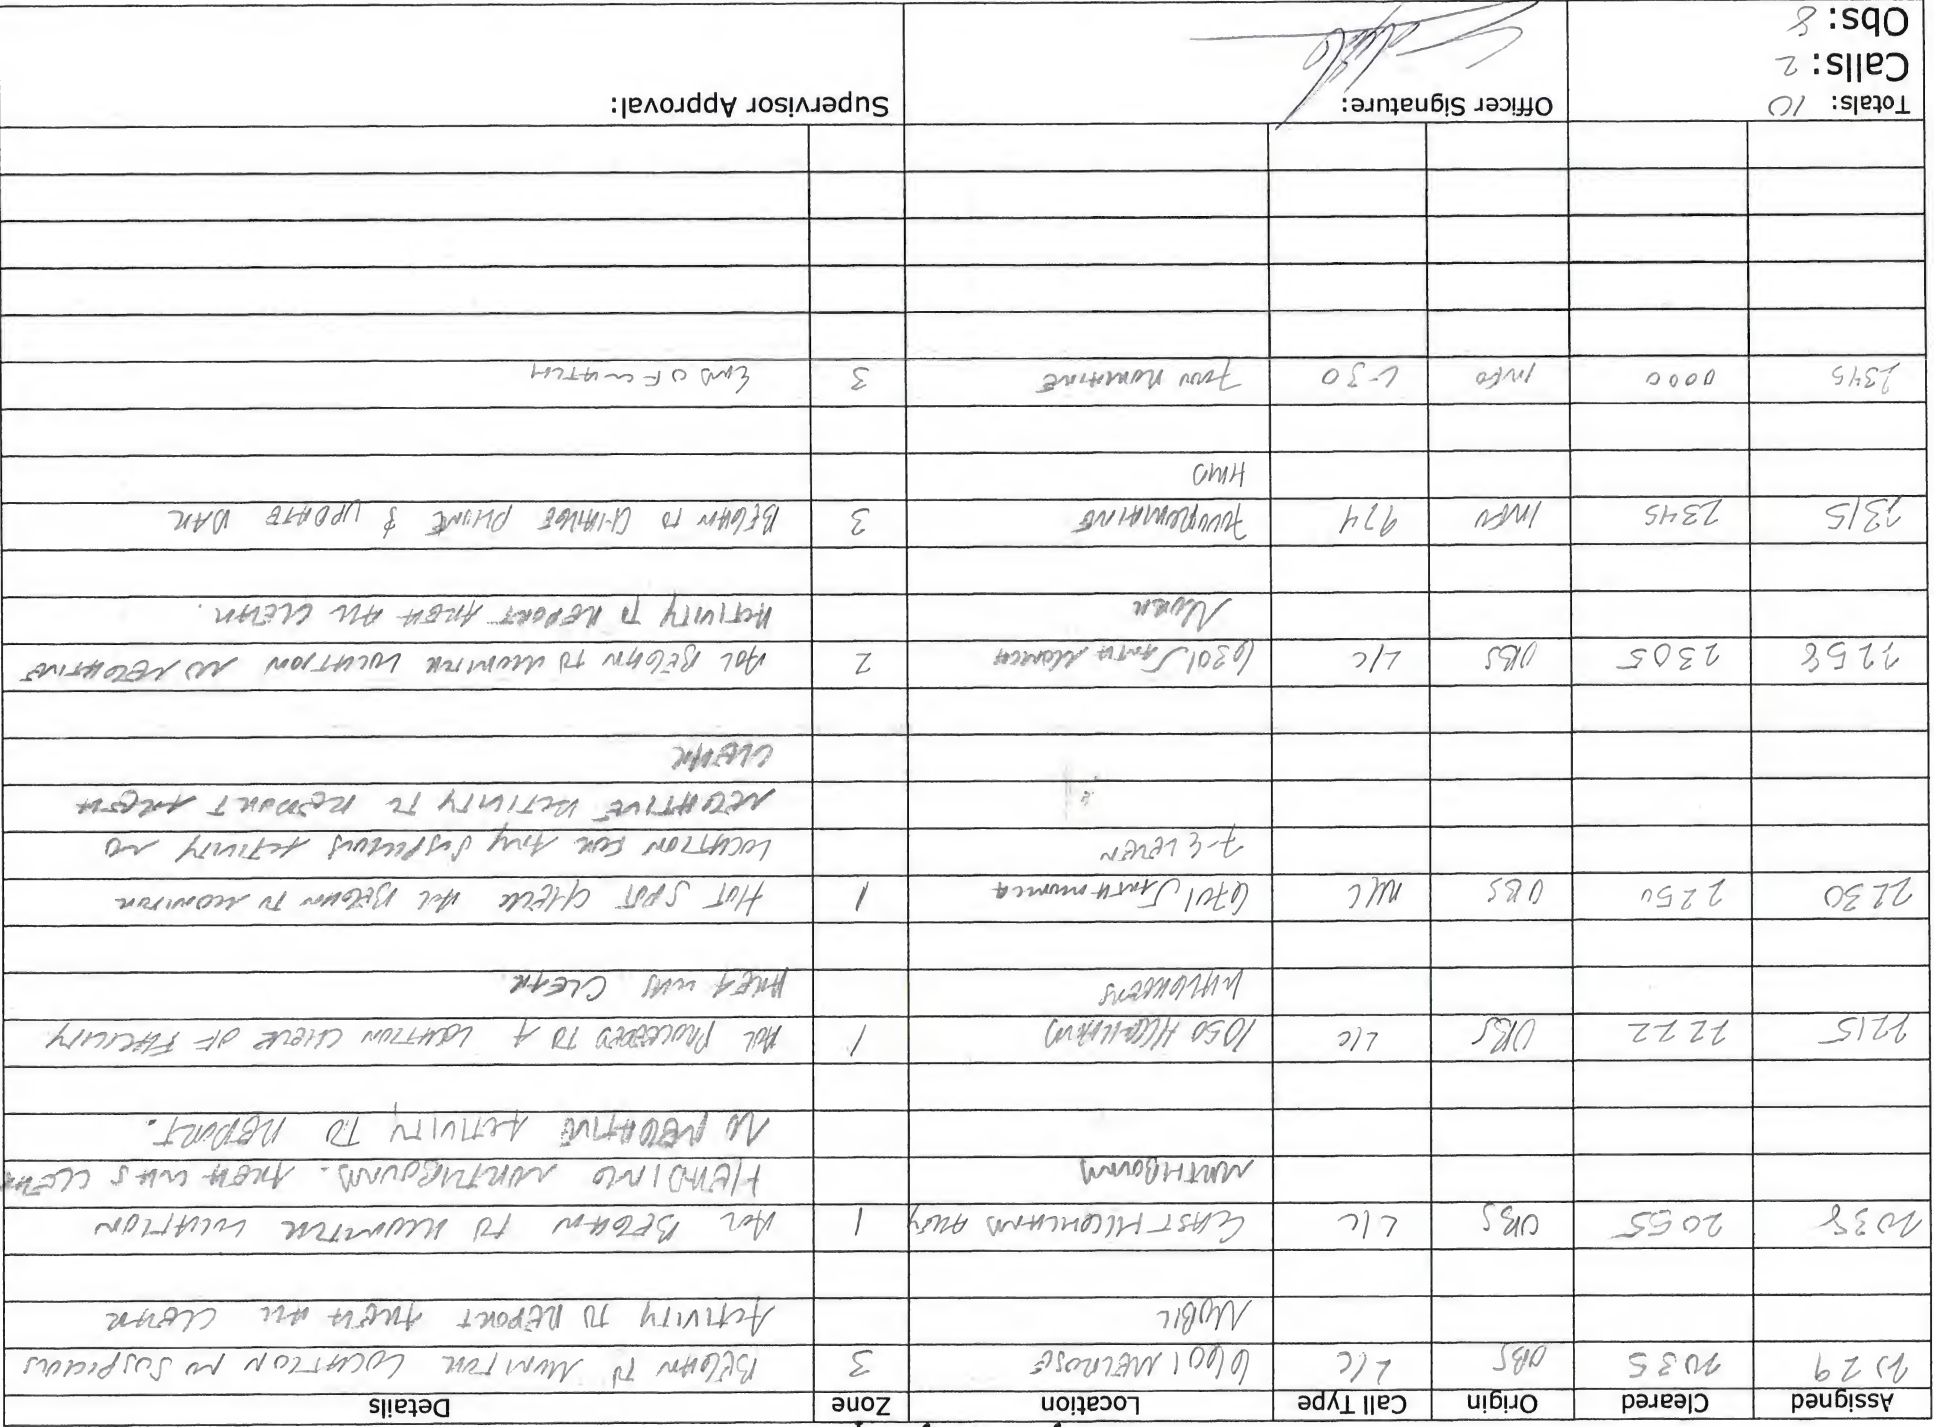 Assigned Cleared Origin Call Type Location Zone Details
2029 2035 OBS L/C 6601 MELROSE 3 BEGAN TO MONITOR LOCATION NO SUSPICIOUS
MOBIL ACTIVITY TO REPORT AREA ALL CLEAR
2038 2055 OBS L/C EAST HIGHLAND HWY 1 ALL BEGAN TO MONITOR LOCATION
NORTHBOUND HEADING NORTHBOUND. AREA WAS CLEAR
NO NEGATIVE ACTIVITY TO REPORT.
2215 2222 OBS L/C 1050 HIGHLAND 1 PROCEEDED TO A LOCATION CHECK OF FACILITY
WALGREENS AREA WAS CLEAR
2230 2250 OBS 6701 SANTA MONICA 1 HOT SPOT CHECK BEGAN TO MONITOR
7-ELEVEN LOCATION FOR ANY SUSPICIOUS ACTIVITY NO
NEGATIVE ACTIVITY TO REPORT AREA
CLEAR
2258 2305 OBS L/C 6301 SANTA MONICA 2 BEGAN TO MONITOR LOCATION NO NEGATIVE
ACTIVITY TO REPORT AREA ALL CLEAR.
2315 2345 INFO 924 7000 ROMAINE 3 BEGAN TO CHANGE PHONE & UPDATE DAR
2345 0000 INFO 7000 ROMAINE 3 END OF WATCH
Totals: 10 Officer Signature: Supervisor Approval:
Calls: 2
Obs: 8